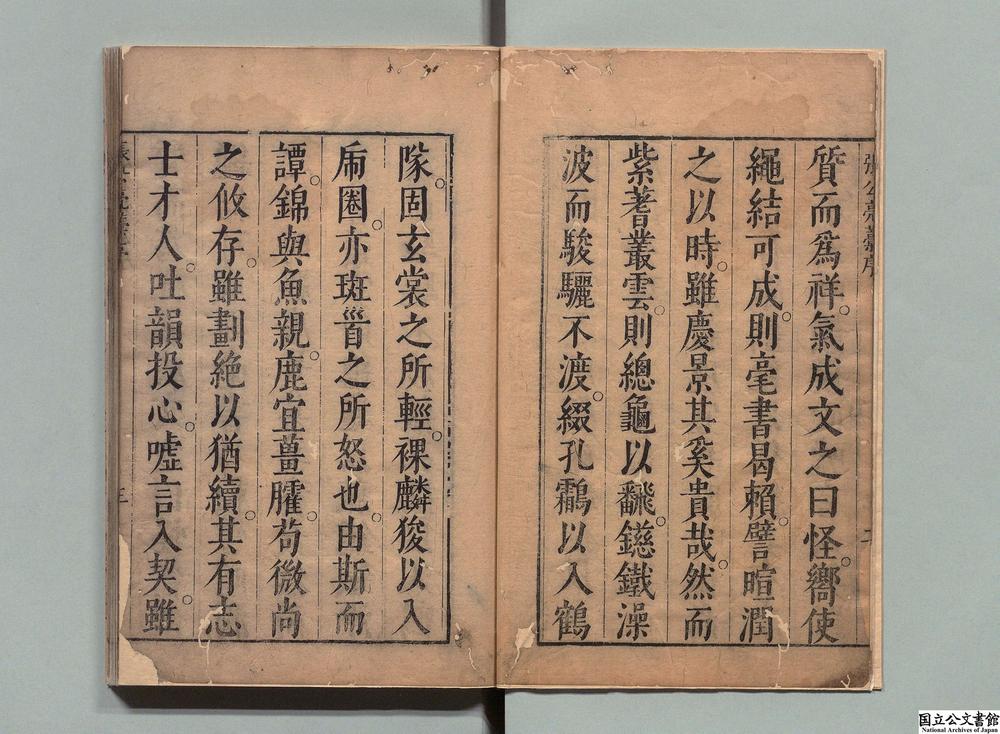 質而爲祥。氣成文之曰怪。嚮使
繩結可成。則毫書曷賴。譬暄潤
之以時。雖慶景其奚貴哉。然而
紫蓍叢雲。則總龜以飜。鎹鐵澡
波而駿驪不渡。綴孔鸘以入鶴
隊。固玄裳之所輕。裸麟狻以入
圈。亦斑首之所怒也。由斯而
譚。錦與魚親。鹿宜薑臛。苟微尚
之攸存。雖劃絶以猶續。其有志
士才人。吐韻投心。噓言入契。雖
二
三
国立公文書館
National Archives of Japan